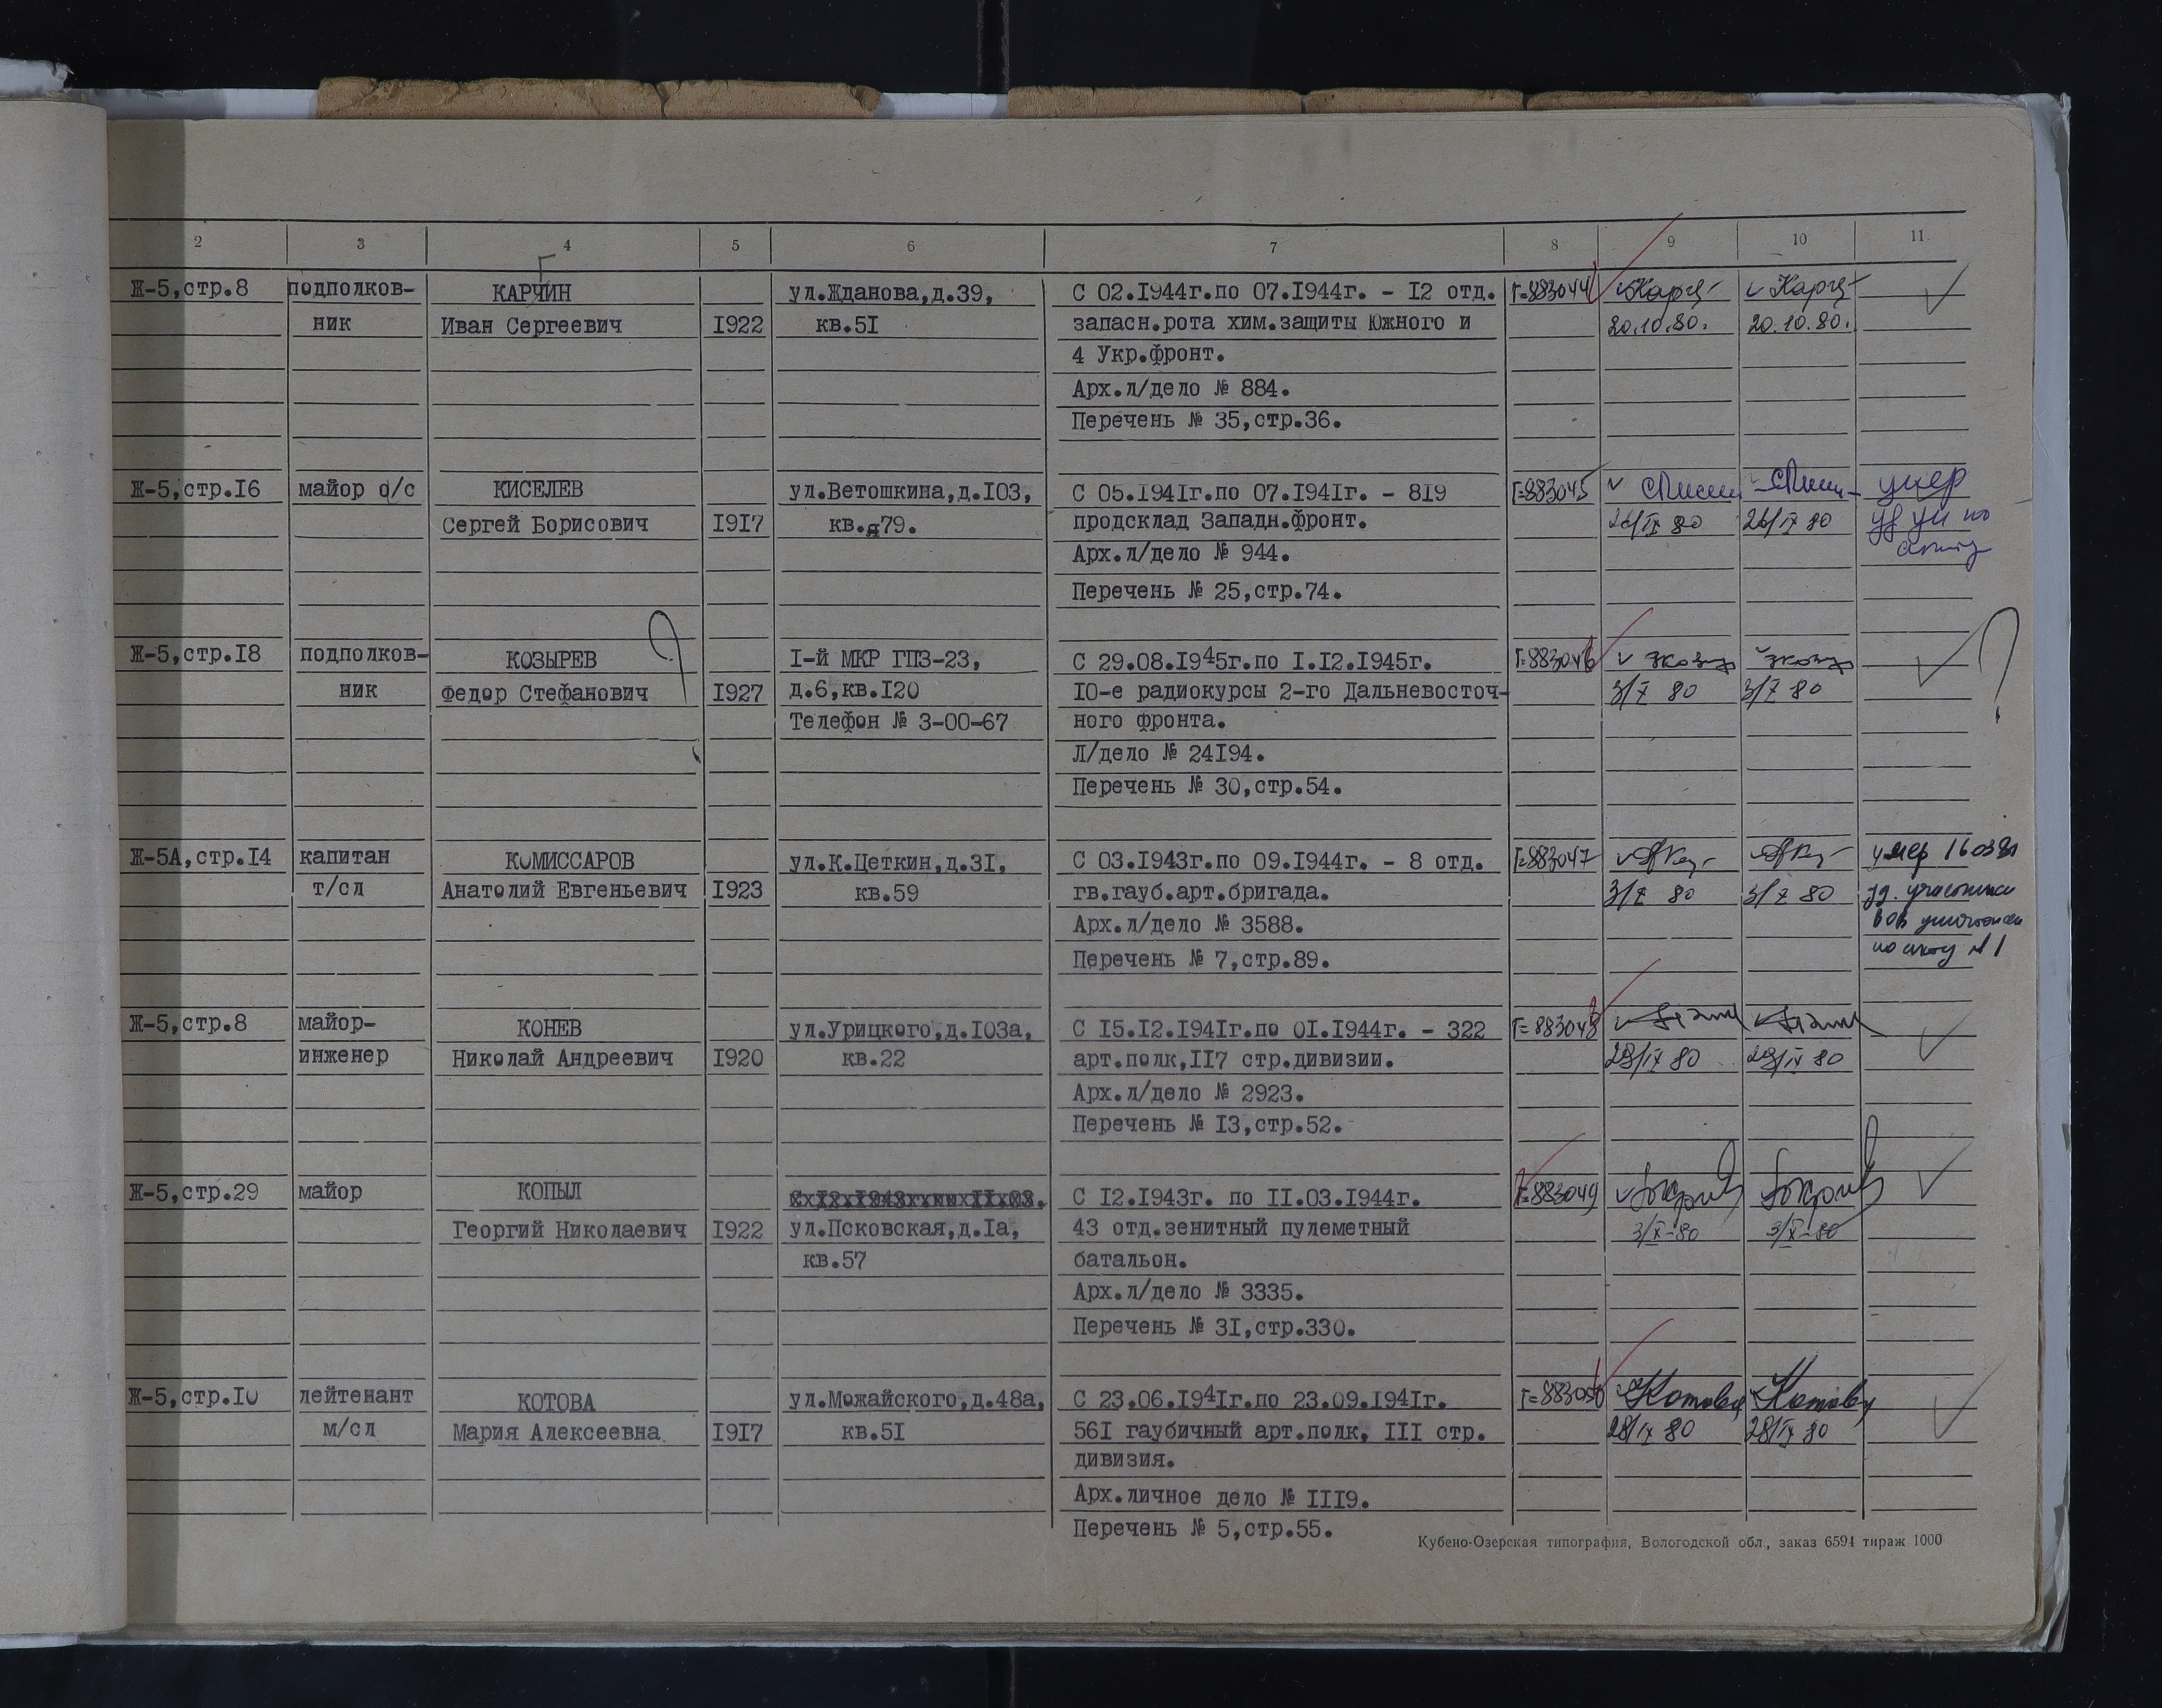 2 3 4 5 6 7 8 9 10 11
Г
Ж-5,стр.8 подполков- КАРЧИН ул.Жданова,д.39, С 02.1944г.по 07.1944г. - 12 отд. Г=883044
ник Иван Сергеевич 1922 кв.51 запасн.рота хим.защиты Южного и 20.10.80. 20.10.80.
4 Укр.фронт.
Арх.л/дело № 884.
Перечень № 35,стр.36.
Ж-5,стр.16 майор о/с КИСЕЛЕВ ул.Ветошкина,д.103, С 05.1941г.по 07.1941г. - 819 Г=883045 умер
Сергей Борисович 1917 кв.79. продсклад Западн.фронт. 26/IX 80 26/IX 80
Арх.л/дело № 944.
Перечень № 25,стр.74.
Ж-5,стр.18 подполков- КОЗЫРЕВ ? 1-й МКР ГПЗ-23, С 29.08.1945г.по 1.12.1945г. Г=883046 ?
ник Федор Стефанович 1927 д.6,кв.120 10-е радиокурсы 2-го Дальневосточ- 3/X 80 3/X 80
Телефон № 3-00-67 ного фронта.
Л/дело № 24194.
Перечень № 30,стр.54.
Ж-5А,стр.14 капитан КОМИССАРОВ ул.К.Цеткин,д.31, С 03.1943г.по 09.1944г. - 8 отд. Г=883047 умер
т/сл Анатолий Евгеньевич 1923 кв.59 гв.гауб.арт.бригада. 3/X 80 3/X 80 уд. участника
Арх.л/дело № 3588. ВОВ
Перечень № 7,стр.89. по акту № 1
Ж-5,стр.8 майор- КОНЕВ ул.Урицкого,д.103а, С 15.12.1941г.по 01.1944г. - 322 Г=883048
инженер Николай Андреевич 1920 кв.22 арт.полк,117 стр.дивизии. 29/IX 80 29/IX 80
Арх.л/дело № 2923.
Перечень № 13,стр.52.
Ж-5,стр.29 майор КОПЫЛ С 12.1943г. по 11.03.1944г. Г=883049
Георгий Николаевич 1922 ул.Псковская,д.1а, 43 отд.зенитный пулеметный 3/X-80 3/X-80
кв.57 батальон.
Арх.л/дело № 3335.
Перечень № 31,стр.330.
Ж-5,стр.10 лейтенант КОТОВА ул.Можайского,д.48а, С 23.06.1941г.по 23.09.1941г. Г=883050 Котова Котова
м/сл Мария Алексеевна 1917 кв.51 561 гаубичный арт.полк, 111 стр. 28/IX 80 28/IX 80
дивизия.
Арх.личное дело № 1119.
Перечень № 5,стр.55.
Кубено-Озерская типография, Вологодской обл., заказ 6594 тираж 1000